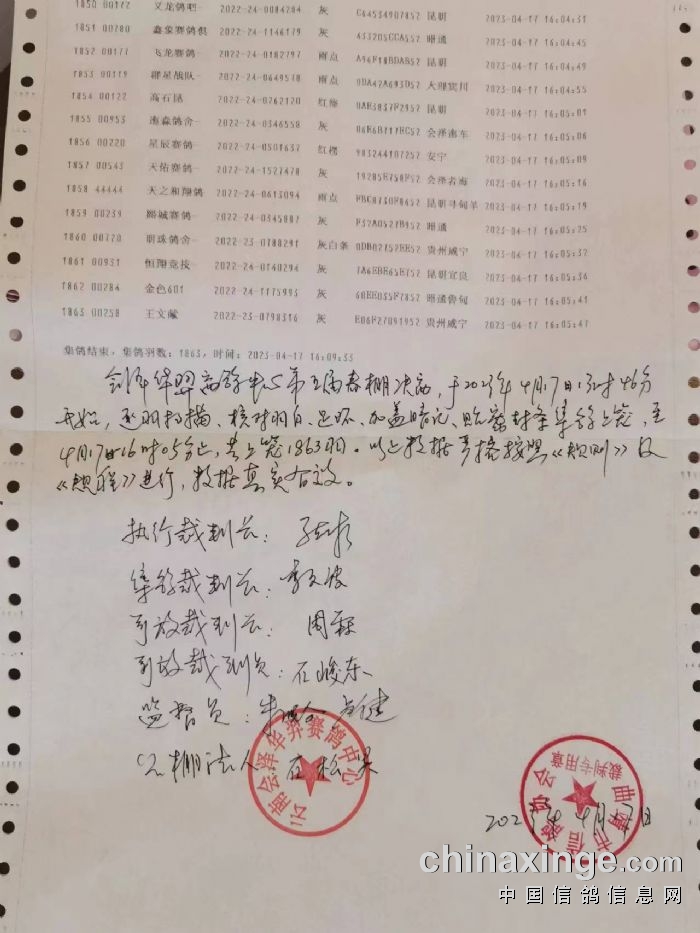 1850 00172 义龙鸽吧— 2022-24-0084284 灰 C64534907852 昆明 2023-04-17 16:04:31
1851 00780 鑫象赛鸽俱 2022-24-1146179 灰 昭通 2023-04-17 16:04:39
1852 00177 飞龙赛鸽— 2022-24-0182797 雨点 昆明 2023-04-17 16:04:49
1853 00119 2022-24-0649578 雨点 0DA42A693D52 大理宾川 2023-04-17 16:04:55
1854 00122 高石昆 2022-24-0262120 红绛 0AE3837F2952 昆明 2023-04-17 16:05:01
1855 00953 2022-24-0346558 灰 会泽 2023-04-17 16:05:06
1856 00220 星辰赛鸽— 2022-24-0501637 红楞 983244107252 安宁 2023-04-17 16:05:09
1857 00543 天佑赛鸽— 2022-24-1527478 灰 会泽者海 2023-04-17 16:05:16
1858 44444 天之和翔鸽 2022-24-0613094 雨点 昆明寻甸羊 2023-04-17 16:05:19
1859 00239 2022-24-0345887 灰 昭通 2023-04-17 16:05:25
1860 00770 明珠鸽舍— 2022-23-0788291 灰白条 贵州威宁 2023-04-17 16:05:32
1861 00931 恒翔竞技— 2022-24-0140294 灰 昆明宜良 2023-04-17 16:05:36
1862 00284 金色601 2022-24-1175993 灰 60EE035F7852 昭通鲁甸 2023-04-17 16:05:41
1863 00258 王文献 2022-23-0798316 灰 E06F27091952 贵州威宁 2023-04-17 16:05:47
集鸽结束，集鸽羽数：1863，时间：2023-04-17 16:09:33
会泽华羿赛鸽中心第五届春棚决赛，于2023年4月17日13时46分
开始，逐羽扫描、核对羽色、足环、加盖暗记、贴密封条集鸽上笼，至
4月17日16时05分止，共上笼1863羽。以上数据严格按照《规则》及
《规程》进行，数据真实有效。
执行裁判长：
集鸽裁判长：
司放裁判长：周霖
司放裁判员：石峻东
监督员：
公棚法人
云南会泽华羿赛鸽中心
裁判专用章
2023年4月17日
chinaxinge.com
中国信鸽信息网